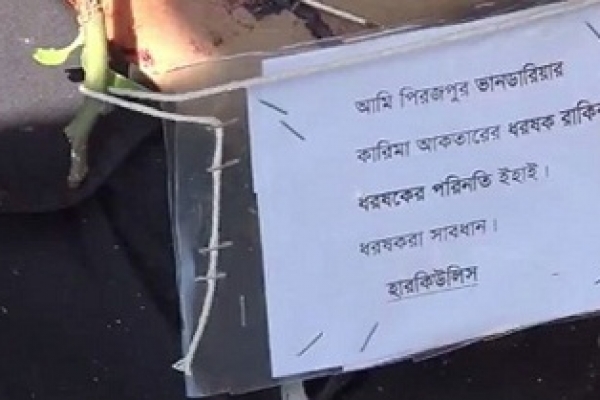 আমি পিরজপুর ভানডারিয়ার
কারিমা আকতারের ধরষক রাকিব
ধরষকের পরিনতি ইহাই।
ধরষকরা সাবধান।
হারকিউলিস